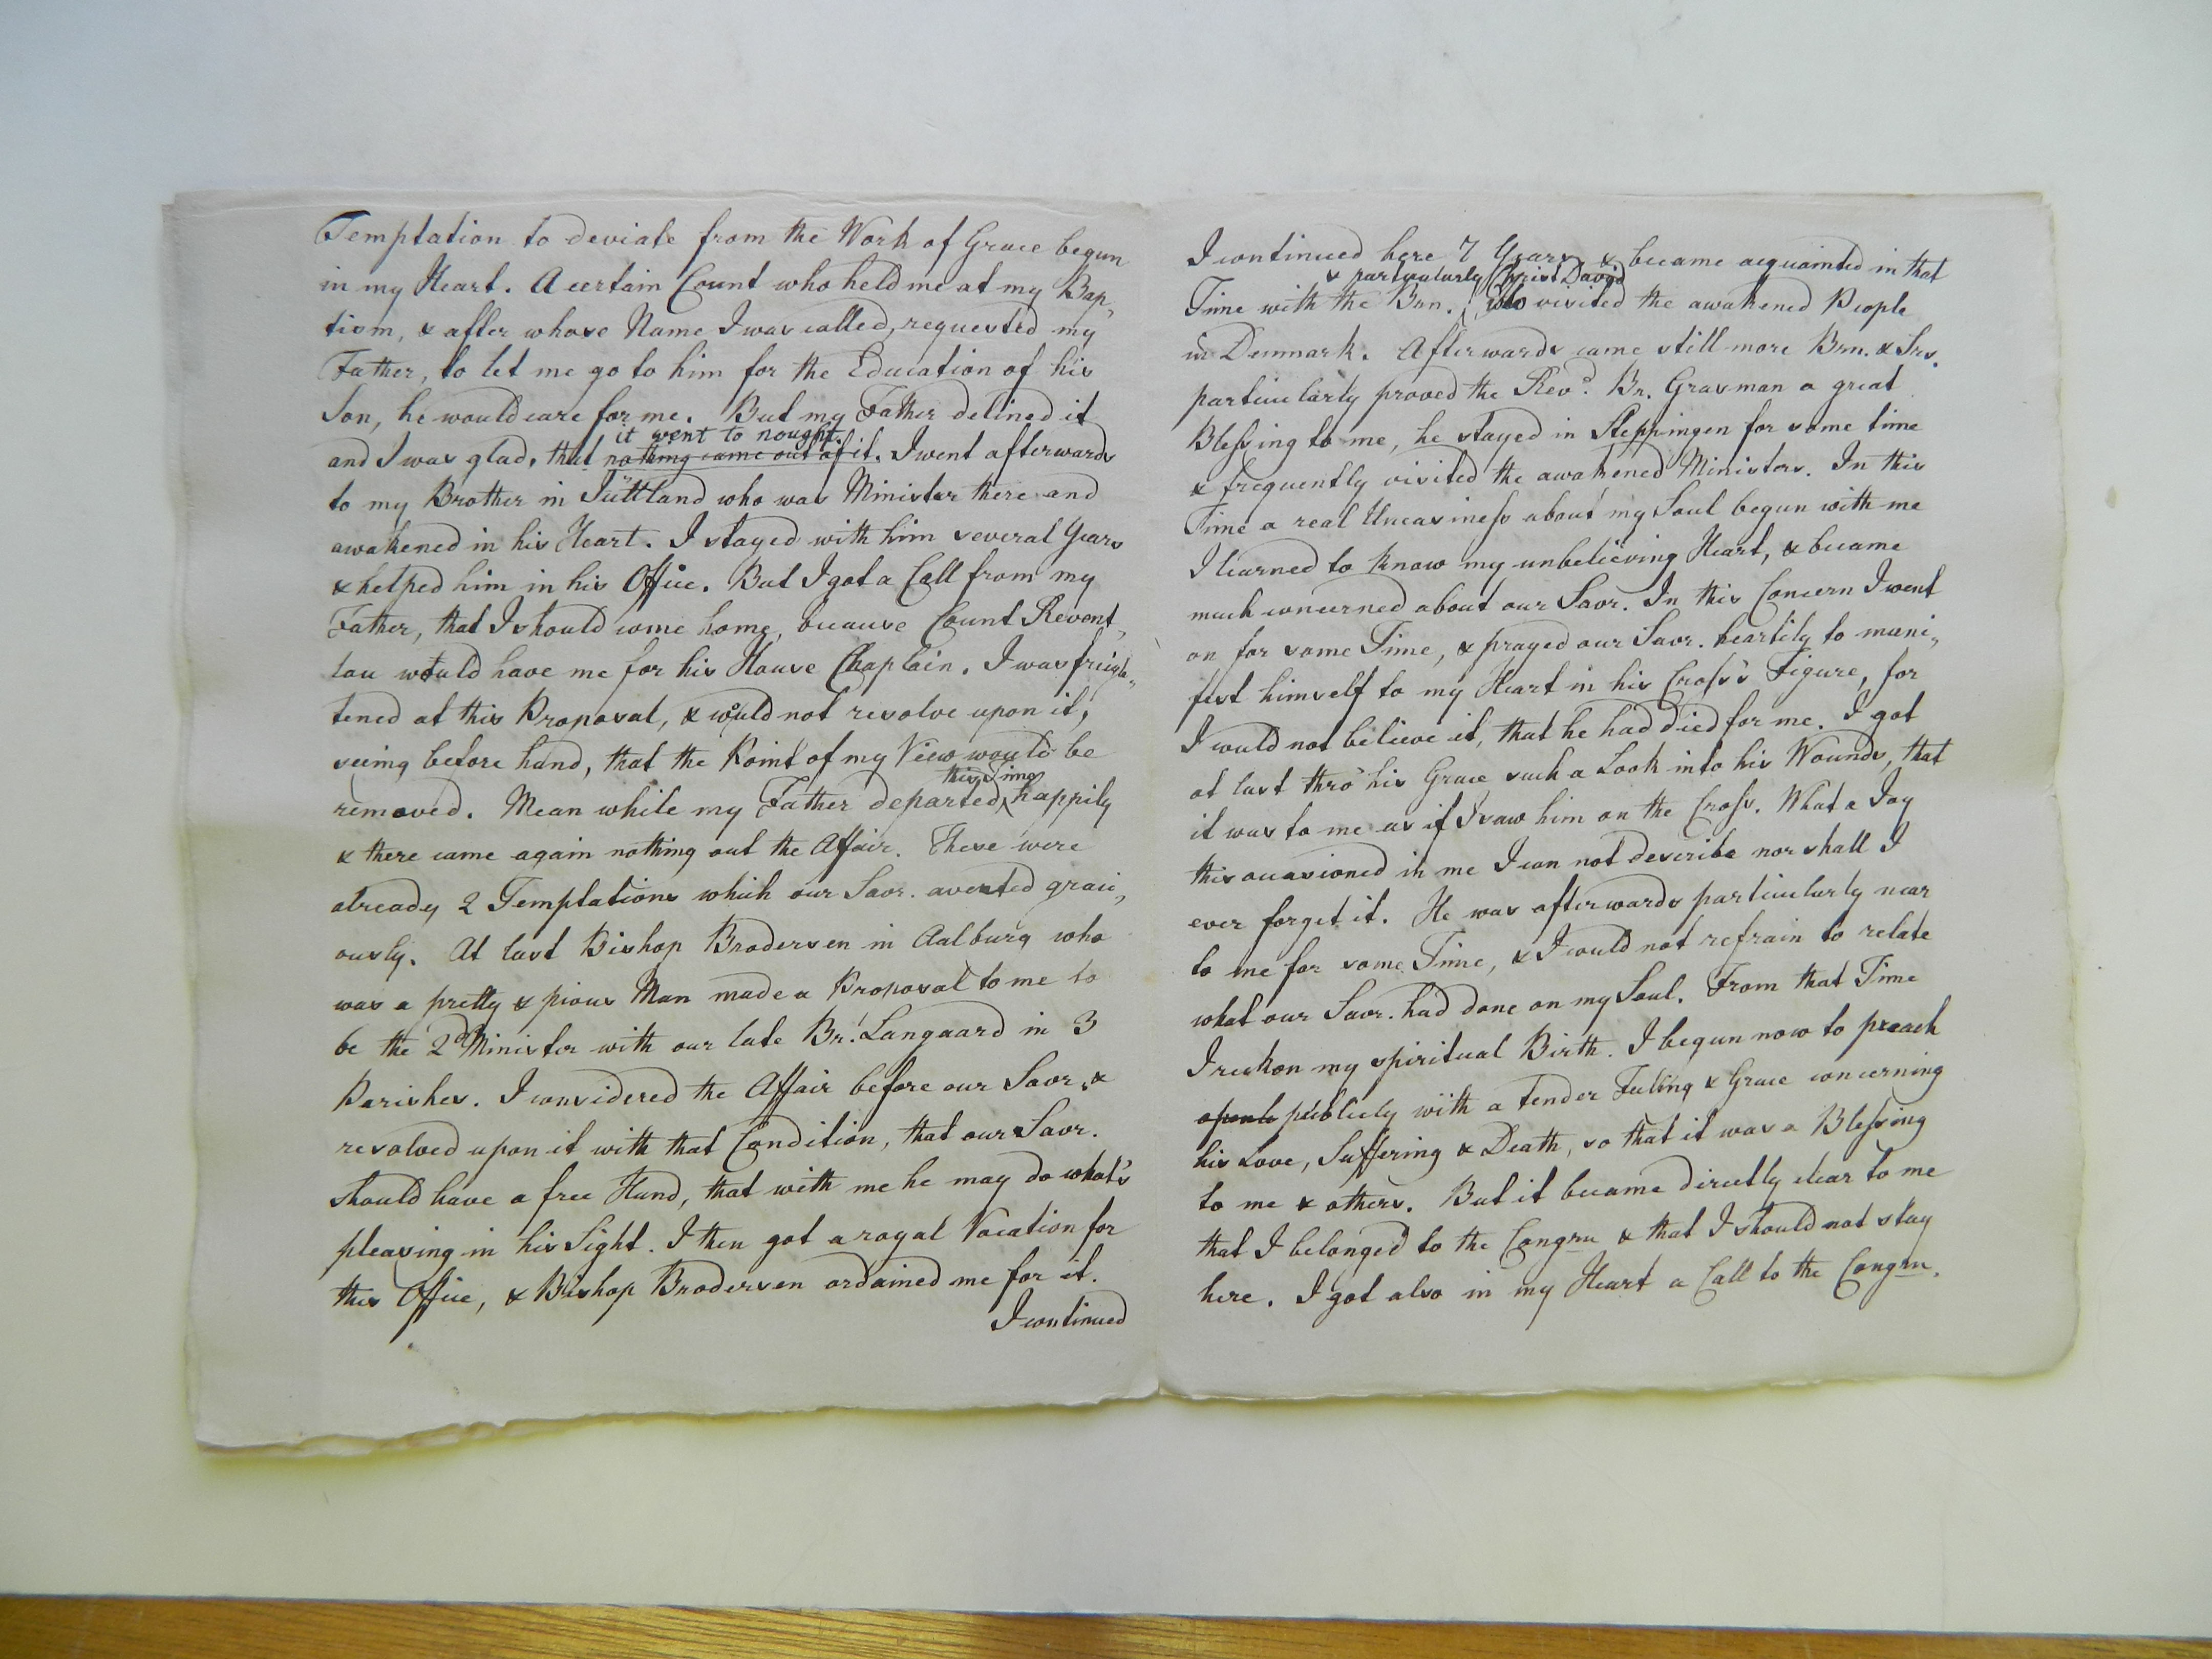 Temptation to deviate from the Work of Grace begun
in my Heart. A certain Count who held me at my Bap„
tism, & after whose Name I was called, requested my
Father, to let me go to him for the Education of his
Son, he would care for me. But my Father delined it
it went to nought.
and I was glad, that nothing came out of it. I went afterwards
to my Brother in Jüttland who was Minister there and
awakened in his Heart. I stayed with him several Years
& helped him in his Office. But I got a Call from my
Father, that I should come home, because Count Revent„
lau would have me for his House Chaplain. I was freigh„
tened at this Proposal, & would not resolve upon it,
seeing before hand, that the Point of my View would be
this Time
removed. Mean while my Father departed happily
& there came again nothing out the Affair. These were
already 2 Temptations which our Savr. averted graci„
ously. At last Bishop Brodersen in Aalburg who
was a pretty & pious Man made a Proposal to me to
be the 2d Minister with our late Br. Langaard in 3
Parishes. I considered the Affair before our Savr. &
resolved upon it with that Condition, that our Savr.
should have a free Hand, that with me he may do what's
pleasing in his Sight. I then got a royal Vocation for
this Office, & Bishop Brodersen ordained me for it.
I continued
I continued here 7 Years & became acquainted in that
& particularly Christ David
Time with the Brn. who visited the awakened People
in Denmark. Afterwards came still more Brn. & Srs.
particularly proved the Revd. Br. Grasman a great
Blessing to me, he stayed in Steppingen for some time
& frequently visited the awakened Ministers. In this
Time a real Uneasiness about my Soul begun with me
I learned to know my unbelieving Heart, & became
much concerned about our Savr. In this Concern I went
on for some Time, & prayed our Savr. heartily to mani„
fest himself to my Heart in his Cross's Figure, for
I could not believe it, that he had died for me. I got
at last thro' his Grace such a Look into his Wounds, that
it was to me as if I saw him on the Cross. What a Joy
this occasioned in me I can not describe nor shall I
ever forget it. He was afterwards particularly near
to me for some Time, & I could not refrain to relate
what our Savr. had done on my Soul. From that Time
I reckon my spiritual Birth. I begun now to preach
publicly with a tender Feeling & Grace concerning
his Love, Suffering & Death, so that it was a Blessing
to me & others. But it became directly clear to me
that I belonged to the Congrn & that I should not stay
here. I got also in my Heart a Call to the Congrn.